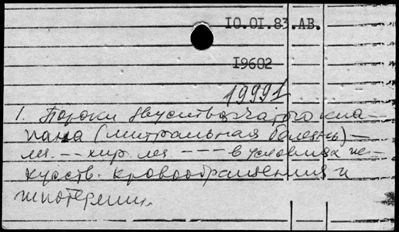 10.01.83.АВ.
19602
19991
1. Пороки двустворчатого кла-
пана (митральная болезнь) –
леч. -- хир. леч --- в условиях ис-
кусств. кровообращения и
гипотермии.